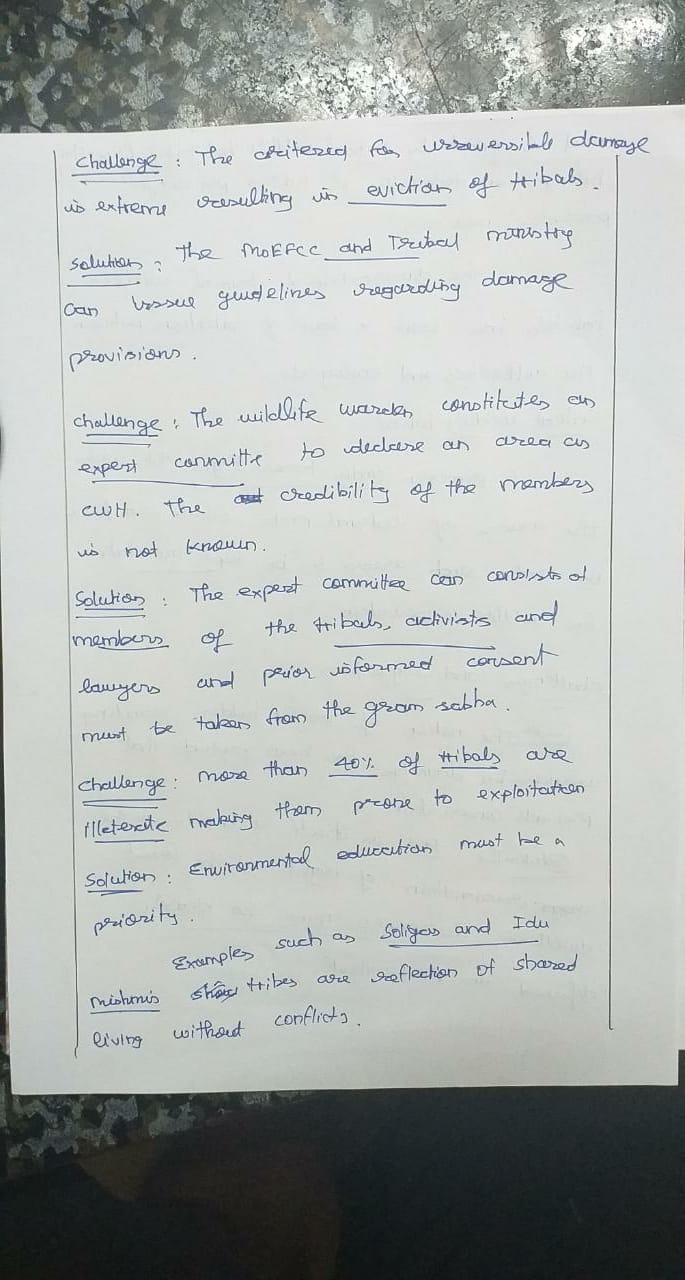 Challenge : The critered for irreversible damage
is extreme resulting in eviction of tribals.
Solution : The MOEFCC and Tribal ministry
can issue guidelines regarding damage
provisions.
Challenge : The wildlife warden constitutes an
expert committe to declare an area as
CWH. The credibility of the members
is not known.
Solution : The expert committee can consists of
members of the tribals, activists and
lawyers and prior informed consent
must be taken from the gram sabha.
Challenge : more than 40% of tribals are
illeterate making them prone to exploitation
Solution : Environmental education must be a
priority.
Examples such as Soligas and Idu
mishmis tribes are reflection of shared
living without conflicts.